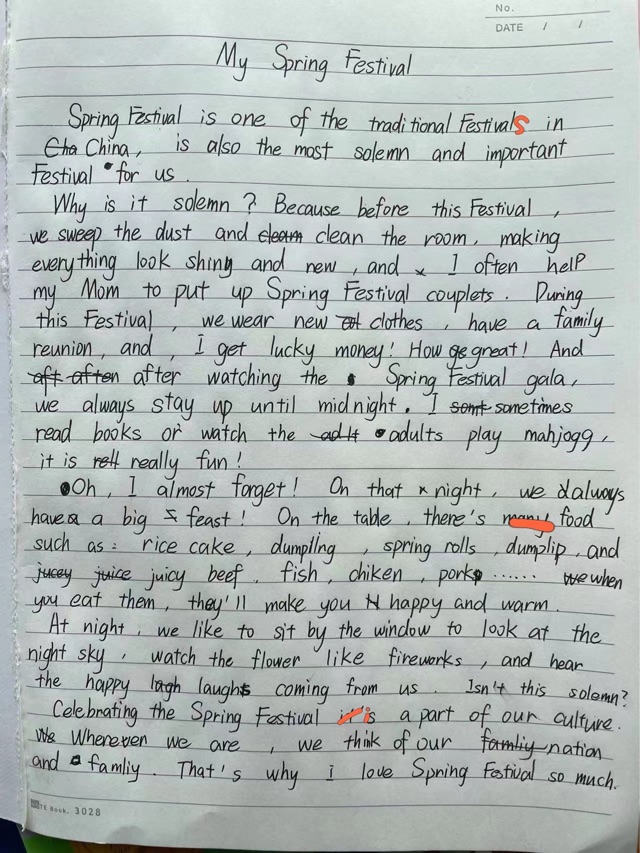 No.
DATE / /
My Spring Festival
Spring Festival is one of the traditional Festivals in
Cha China, is also the most solemn and important
Festival for us.
Why is it solemn? Because before this Festival,
we sweep the dust and cleam clean the room, making
everything look shiny and new, and I often help
my Mom to put up Spring Festival couplets. During
this Festival, we wear new clothes, have a family
reunion, and, I get lucky money! How ge great! And
aft aften after watching the Spring Festival gala,
we always stay up until midnight. I somt sometimes
read books or watch the adlt adults play mahjogg,
it is rell really fun!
Oh, I almost forget! On that night, we always
have a a big feast! On the table, there's many food
such as: rice cake, dumpling, spring rolls, dumplip, and
jucey juice juicy beef, fish, chiken, pork ...... we when
you eat them, they'll make you happy and warm.
At night, we like to sit by the window to look at the
night sky, watch the flower like fireworks, and hear
the happy lagh laughs coming from us. Isn't this solemn?
Celebrating the Spring Festival is a part of our culture.
We Wherever we are, we think of our famliy nation
and famliy. That's why i love Spring Festival so much.
TE Book. 3028